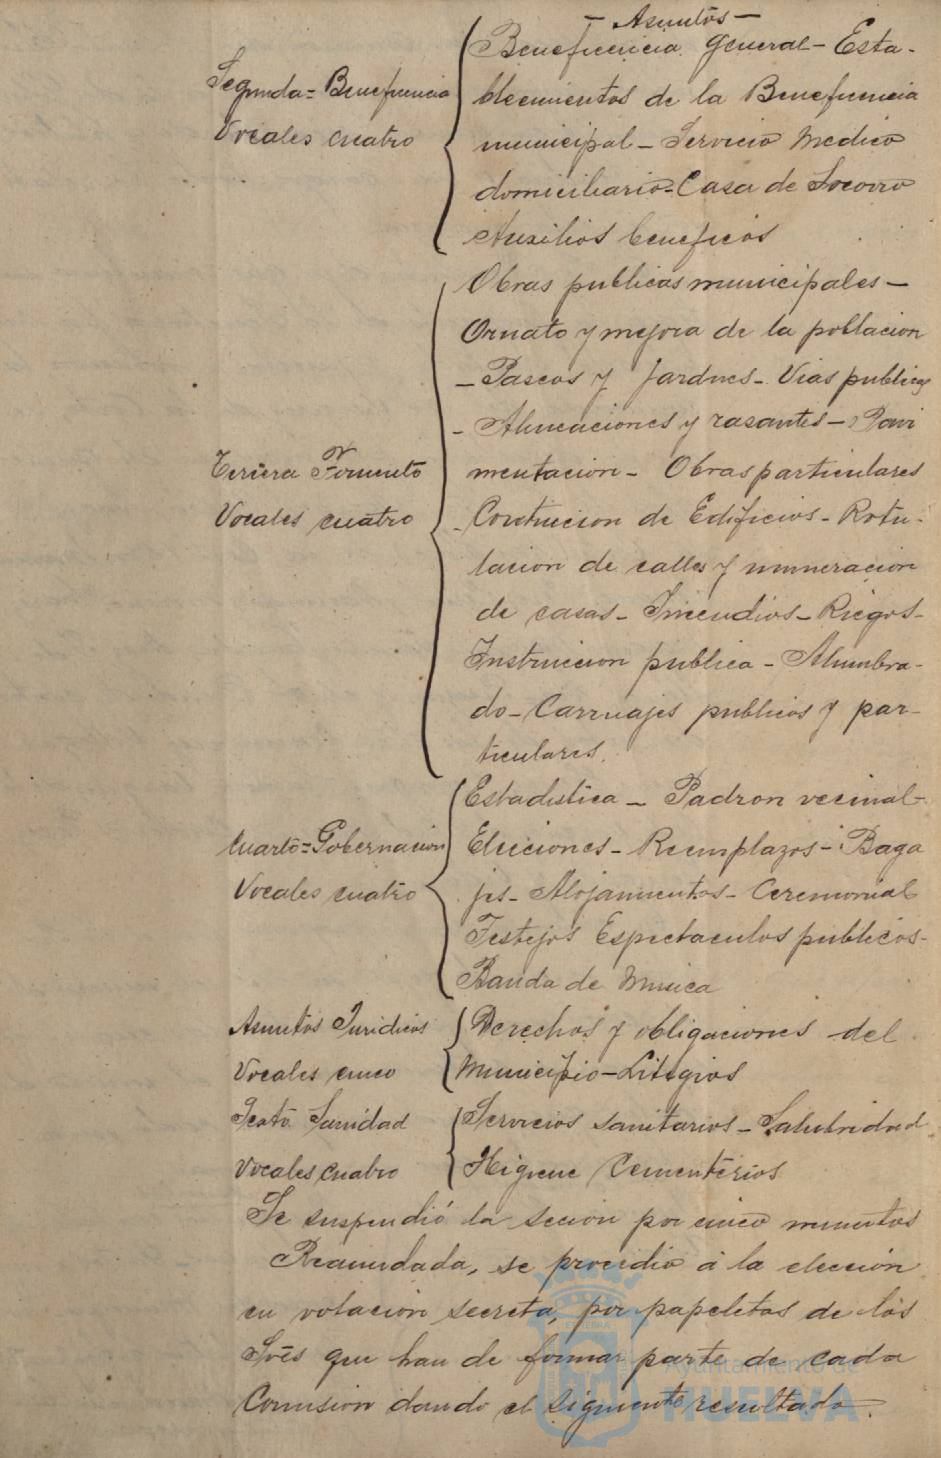 — Asuntos —
Segunda = Beneficencia
Vocales cuatro
Beneficencia general — Esta-
blecimientos de la Beneficencia
municipal — Servicio Medico
domiciliario - Casa de Socorro
Auxilios beneficos
Tercera Fomento
Vocales cuatro
Obras publicas municipales —
Ornato y mejora de la poblacion
— Paseos y Jardines - Vias publicas
- Alineaciones y rasantes — Pavi
mentacion - Obras particulares
- Contrucion de Edificios - Rotu-
lacion de calles y numeracion
de casas - Incendios - Riegos -
Instruccion publica - Alumbra-
do - Carruajes publicos y par-
ticulares.
Cuarto = Gobernacion
Vocales cuatro
Estadistica — Padron vecinal -
Elecciones - Reemplazos - Baga
jes - Alojamientos - Ceremonial
Festejos Espectaculos publicos -
Banda de Musica
Asuntos Juridicos
Vocales cinco
Derechos y obligaciones del
Municipio — Litigios
Sexto Sanidad
Vocales cuatro
Servicios sanitarios - Salubridad
Higiene Cementerios
Se suspendió la secion por cinco minutos
Reanudada, se procedio á la elección
en votacion secreta, por papeletas de los
Sres que han de formar parte de cada
Comision dando el siguiente resultado.
Ayuntamiento de
HUELVA